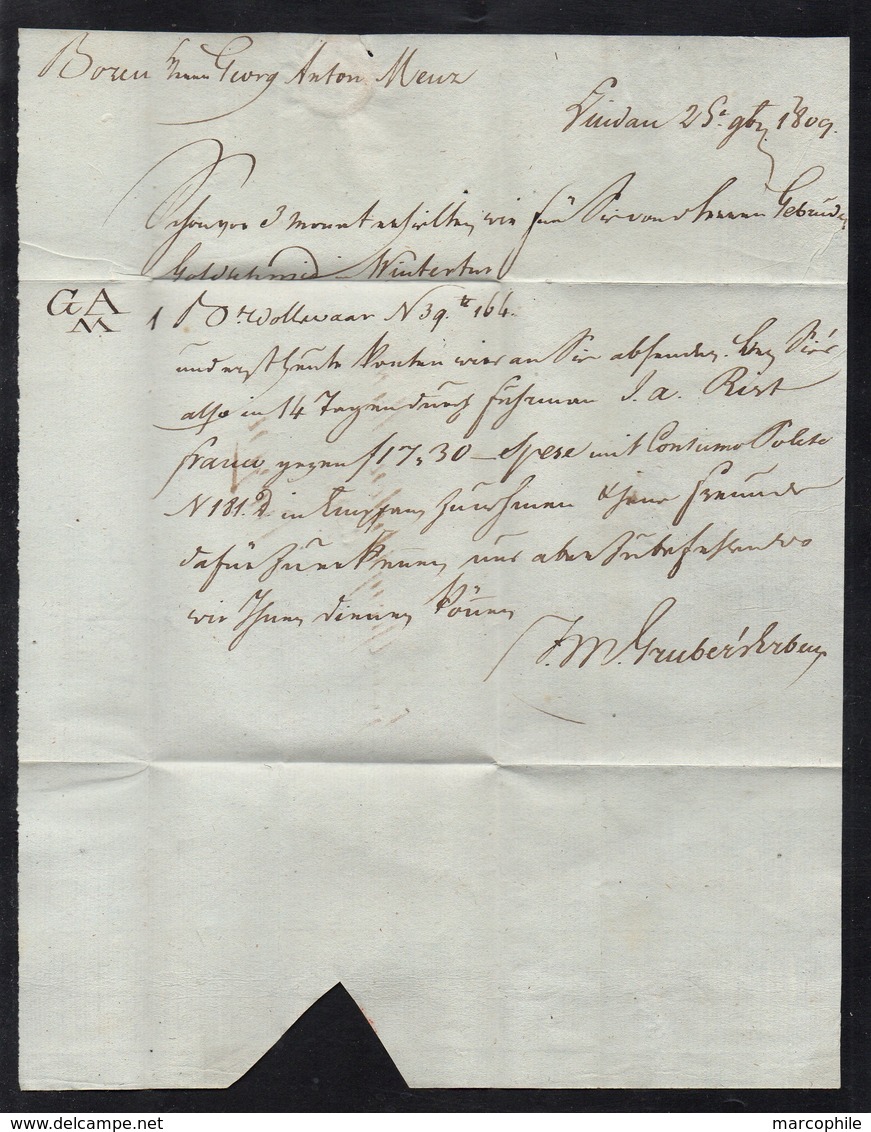 Bozen Herrn Georg Anton Menz
Lindau 25t. 9br. 1809.
Schon vor 3 Monat erhielten wir für Sie von Herren Gebrüder
Goldschmid Winterthur
GAM 1 Bo Wollwaar N 39. 164.
und erst heute konten wir an Sie absenden.
also in 14 Tagen durch Fuhrman J. A. Rist
franco gegen f 17,30 Spese mit Consumo Polete
N 181 in Empfang zu nehmen Freunde
dafür zu erkennen, uns aber zu befehlen wo
wir Ihnen dienen können
J. M. Gruber's Erben
marcophile